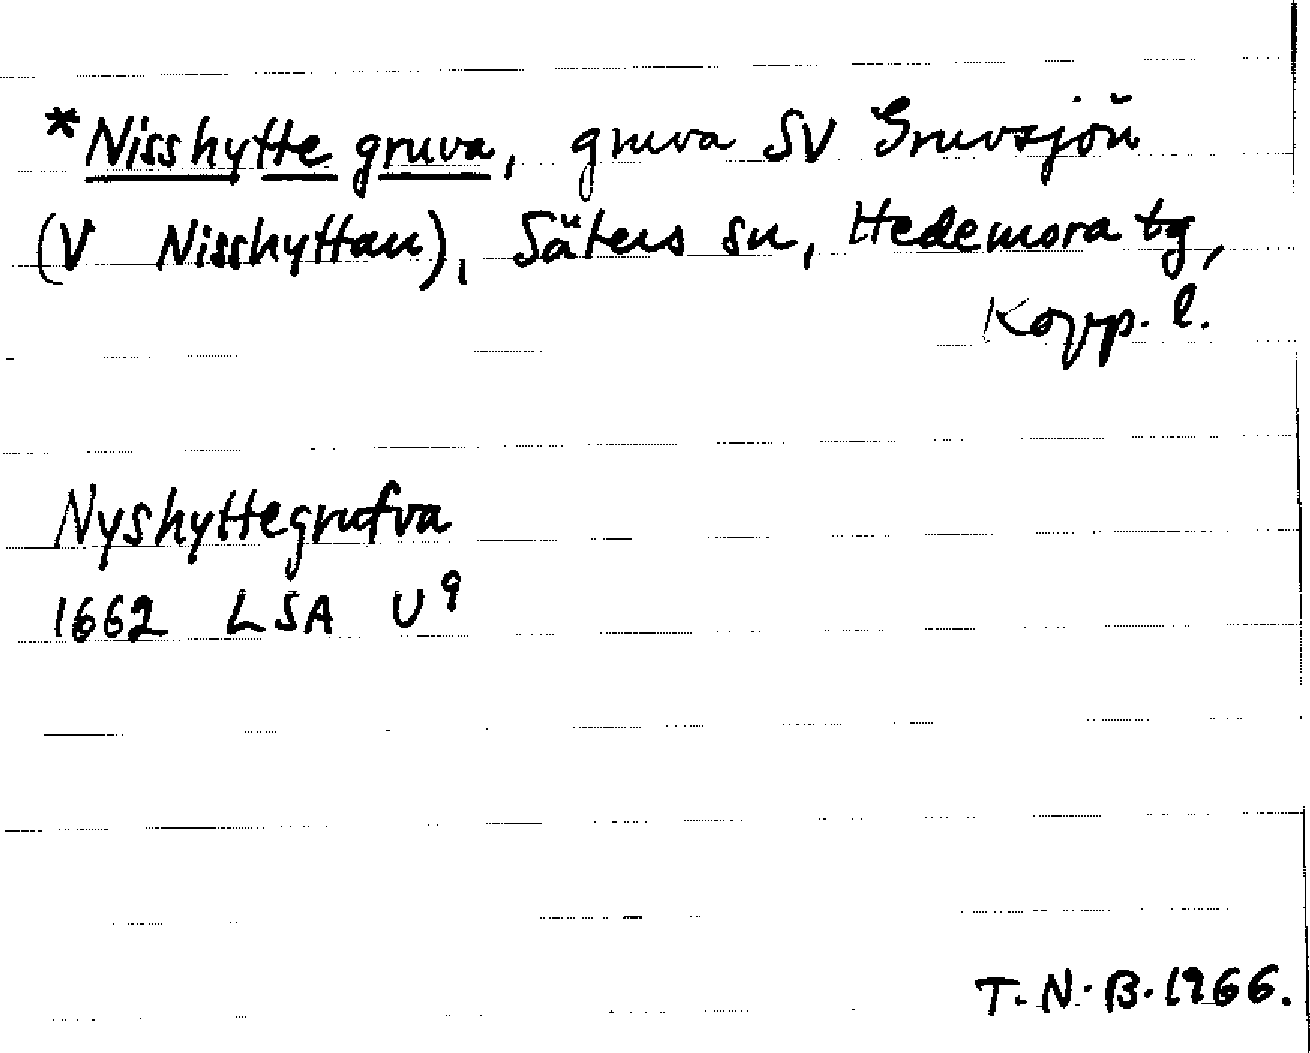 *Nisshytte gruva, gruva SV Gruvsjön
(V Nisshyttan), Säters sn, Hedemora tg,
Kopp. l.
Nyshyttegrufva
1662 LSA U9
T.N.B. 1966.